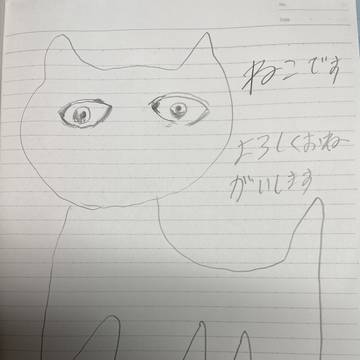 No.
Date
ねこです
よろしくおね
がいします